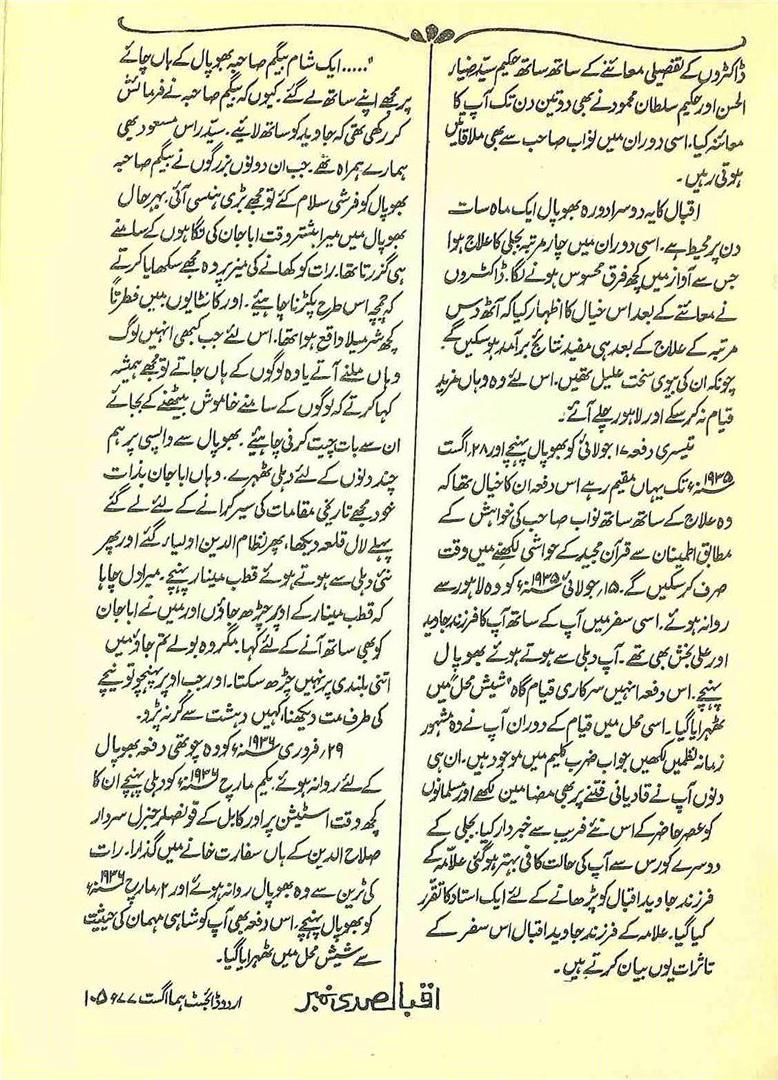 ڈاکٹروں کے تفصیلی معائنے کے ساتھ ساتھ حکیم سیّد ضیار
الحسن اور حکیم سلطان محمود نے بھی دو تین دن تک آپ کا
معائنہ کیا۔ اسی دوران میں نواب صاحب سے بھی ملاقاتیں
ہوتی رہیں۔
اقبال کا یہ دوسرا دورہ بھوپال ایک ماہ سات
دن پر محیط ہے۔ اسی دوران میں چار مرتبہ بجلی کا علاج ہوا
جس سے آواز میں کچھ فرق محسوس ہونے لگا۔ ڈاکٹروں
نے معائنے کے بعد اس خیال کا اظہار کیا کہ آٹھ دس
مرتبہ کے علاج کے بعد ہی مفید نتائج برآمد ہو سکیں گے
چونکہ ان کی بیوی سخت علیل تھیں۔ اس لئے وہ وہاں مزید
قیام نہ کر سکے اور لاہور چلے آئے۔
تیسری دفعہ ۱۷ جولائی کو بھوپال پہنچے اور ۲۸؍ اگست
۱۹۳۵ء تک یہاں مقیم رہے اس دفعہ ان کا خیال تھا کہ
وہ علاج کے ساتھ ساتھ نواب صاحب کی خواہش کے
مطابق اطمینان سے قرآن مجید کے حواشی لکھنے میں وقت
صرف کر سکیں گے۔ ۱۵؍ جولائی ۱۹۳۵ء کو وہ لاہور سے
روانہ ہوئے۔ اسی سفر میں آپ کے ساتھ آپ کا فرزند جاوید
اور علی بخش بھی تھے۔ آپ دہلی سے ہوتے ہوئے بھوپال
پہنچے۔ اس دفعہ انہیں سرکاری قیام گاہ "شیش محل" میں
ٹھہرایا گیا۔ اسی محل میں قیام کے دوران آپ نے وہ مشہور
زمانہ نظمیں لکھیں جو اب ضرب کلیم میں موجود ہیں۔ ان ہی
دنوں آپ نے قادیانی فتنے پر بھی مضامین لکھے اور مسلمانوں
کو عصر حاضر کے اس نئے فریب سے خبردار کیا۔ بجلی کے
دوسرے کورس سے آپ کی حالت کافی بہتر ہو گئی علاّمہ کے
فرزند جاوید اقبال کو پڑھانے کے لئے ایک استاد کا تقرّر
کیا گیا۔ علامہ کے فرزند جاوید اقبال اس سفر کے
تاثرات یوں بیان کرتے ہیں۔
"..... ایک شام بیگم صاحبہ بھوپال کے ہاں چائے
پر مجھے اپنے ساتھ لے گئے۔ کیوں کہ بیگم صاحبہ نے فرمائش
کر رکھی تھی کہ جاوید کو ساتھ لائیے۔ سیّد راس مسعود بھی
ہمارے ہمراہ تھے۔ جب ان دونوں بزرگوں نے بیگم صاحبہ
بھوپال کو فرشی سلام کئے تو مجھے بڑی ہنسی آئی۔ بہر حال
بھوپال میں میرا بیشتر وقت ابا جان کی نگاہوں کے سامنے
ہی گزرتا تھا۔ رات کو کھانے کی میز پر وہ مجھے سکھایا کرتے
کہ چمچہ اس طرح پکڑنا چاہیئے۔ اور کانٹا یوں میں فطرتاً
کچھ شرمیلا واقع ہوا تھا۔ اس لئے جب کبھی انہیں لوگ
وہاں ملنے آتے یا وہ لوگوں کے ہاں جاتے تو مجھے ہمیشہ
کہا کرتے کہ لوگوں کے سامنے خاموش بیٹھنے کے بجائے
ان سے بات چیت کرنی چاہیئے۔ بھوپال سے واپسی پر ہم
چند دنوں کے لئے دہلی ٹھہرے۔ وہاں ابا جان بذات
خود مجھے تاریخی مقامات کی سیر کرانے کے لئے لے گئے
پہلے لال قلعہ دیکھا، پھر نظام الدین اولیاء گئے اور پھر
نئی دہلی سے ہوتے ہوئے قطب مینار پہنچے۔ میرا دل چاہا
کہ قطب مینار کے اوپر چڑھ جاؤں اور میں نے ابا جان
کو بھی ساتھ آنے کے لئے کہا۔ مگر وہ بولے تم جاؤ میں
اتنی بلندی پر نہیں چڑھ سکتا۔ اور جب اوپر پہنچو تو نیچے
کی طرف مت دیکھنا، کہیں دہشت سے گر نہ پڑو۔
۲۹؍ فروری ۱۹۳۶ء کو وہ چوتھی دفعہ بھوپال
کے لئے روانہ ہوئے۔ یکم مارچ ۱۹۳۶ء کو دہلی پہنچے ان کا
کچھ وقت اسٹیشن پر اور کابل کے قونصلر جنرل سردار
صلاح الدین کے ہاں سفارت خانے میں گذارا۔ رات
کی ٹرین سے وہ بھوپال روانہ ہوئے اور ۲؍ مارچ ۱۹۳۶ء
کو بھوپال پہنچے۔ اس دفعہ بھی آپ کو شاہی مہمان کی حیثیت
سے شیش محل میں ٹھہرایا گیا۔
اقبال صدی نمبر
اردو ڈائجسٹ ہما اگست ۷۷ء ۱۰۵